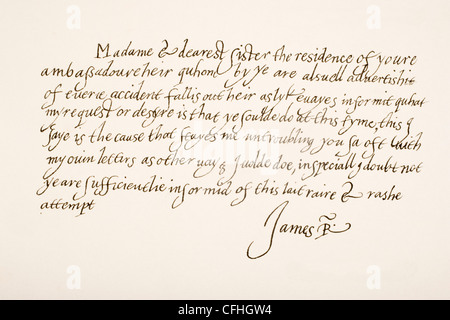 Madame & dearest sister the residence of youre
ambassadoure heir quhom by ye are alsuell advertishit
of everie accident fallis out heir as lykewayes informit quhat
my request or desyre is that ye soulde do at this tyme, this I
saye is the cause that stayes me untroubling you sa oft with
my ouin letters as other wayes I wolde doe, in speciall I doubt not
ye are sufficientlie informid of this lait raire & rashe
attempt
James R.
alamy
www.alamy.com - CFHGW4